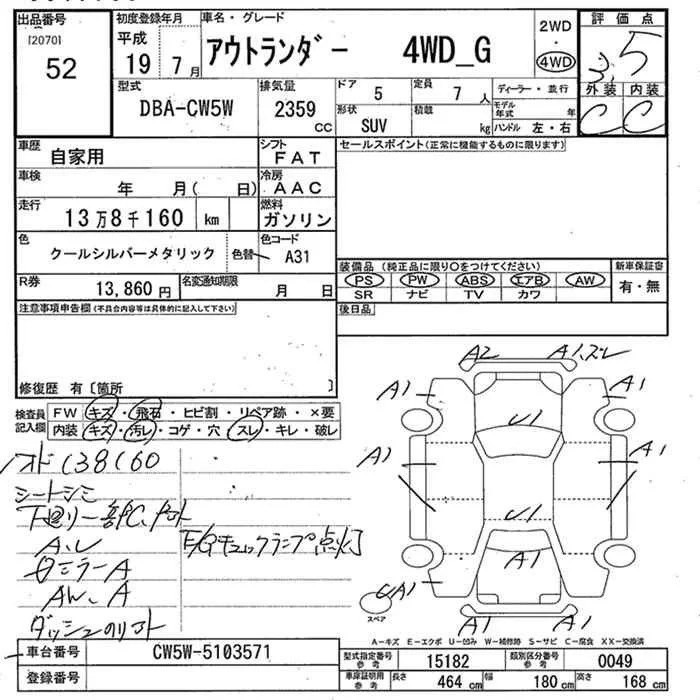 出品番号 初度登録年月 車名・グレード 2WD・4WD 評価点
[2070]
52
平成
19 7月
アウトランダー 4WD_G
3.5
外装 内装
C C
型式 排気量 ドア 定員 ディーラー・並行
DBA-CW5W 2359 cc 5 7人
形状 積載 モデル年式 年
SUV kg ハンドル 左・右
車歴 シフト セールスポイント(正常に機能するものに限ります)
自家用 FAT
車検 冷房
年 月( 日) AAC
走行 燃料
13万8千160 km ガソリン
色 色コード
クールシルバーメタリック 色替 A31
装備品(純正品に限り○をつけてください) 新車保証書
PS PW ABS エアB AW 有・無
SR ナビ TV カワ
R券 名変通知期限
13,860円 月 日
後日品
注意事項申告欄(不具合内容等は具体的に記入して下さい)
修復歴 有〔箇所 〕
検査員記入欄
FW キズ・飛石・ヒビ割・リペア跡・×要
内装 キズ・汚レ・コゲ・穴・スレ・キレ・破レ
138160
シートシミ
下廻り一部C、
E/Gチェックランプ点灯
ミラーA
AW、A
A2 A1、ズレ
A1 A1
U1
A1 A1
U1
A1
A1
A1 A1
スペア
A-キズ E-エクボ U-凹み W-補修跡 S-サビ C-腐食 XX-交換済
車台番号 CW5W-5103571
登録番号
型式指定番号 参考 15182 類別区分番号 参考 0049
車庫証明用 参考 長さ 464 cm 幅 180 cm 高さ 168 cm